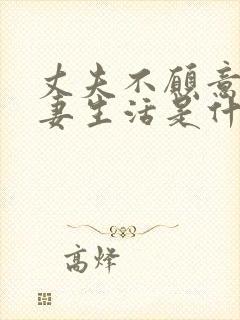 丈夫不愿意
妻生活是什
高烽